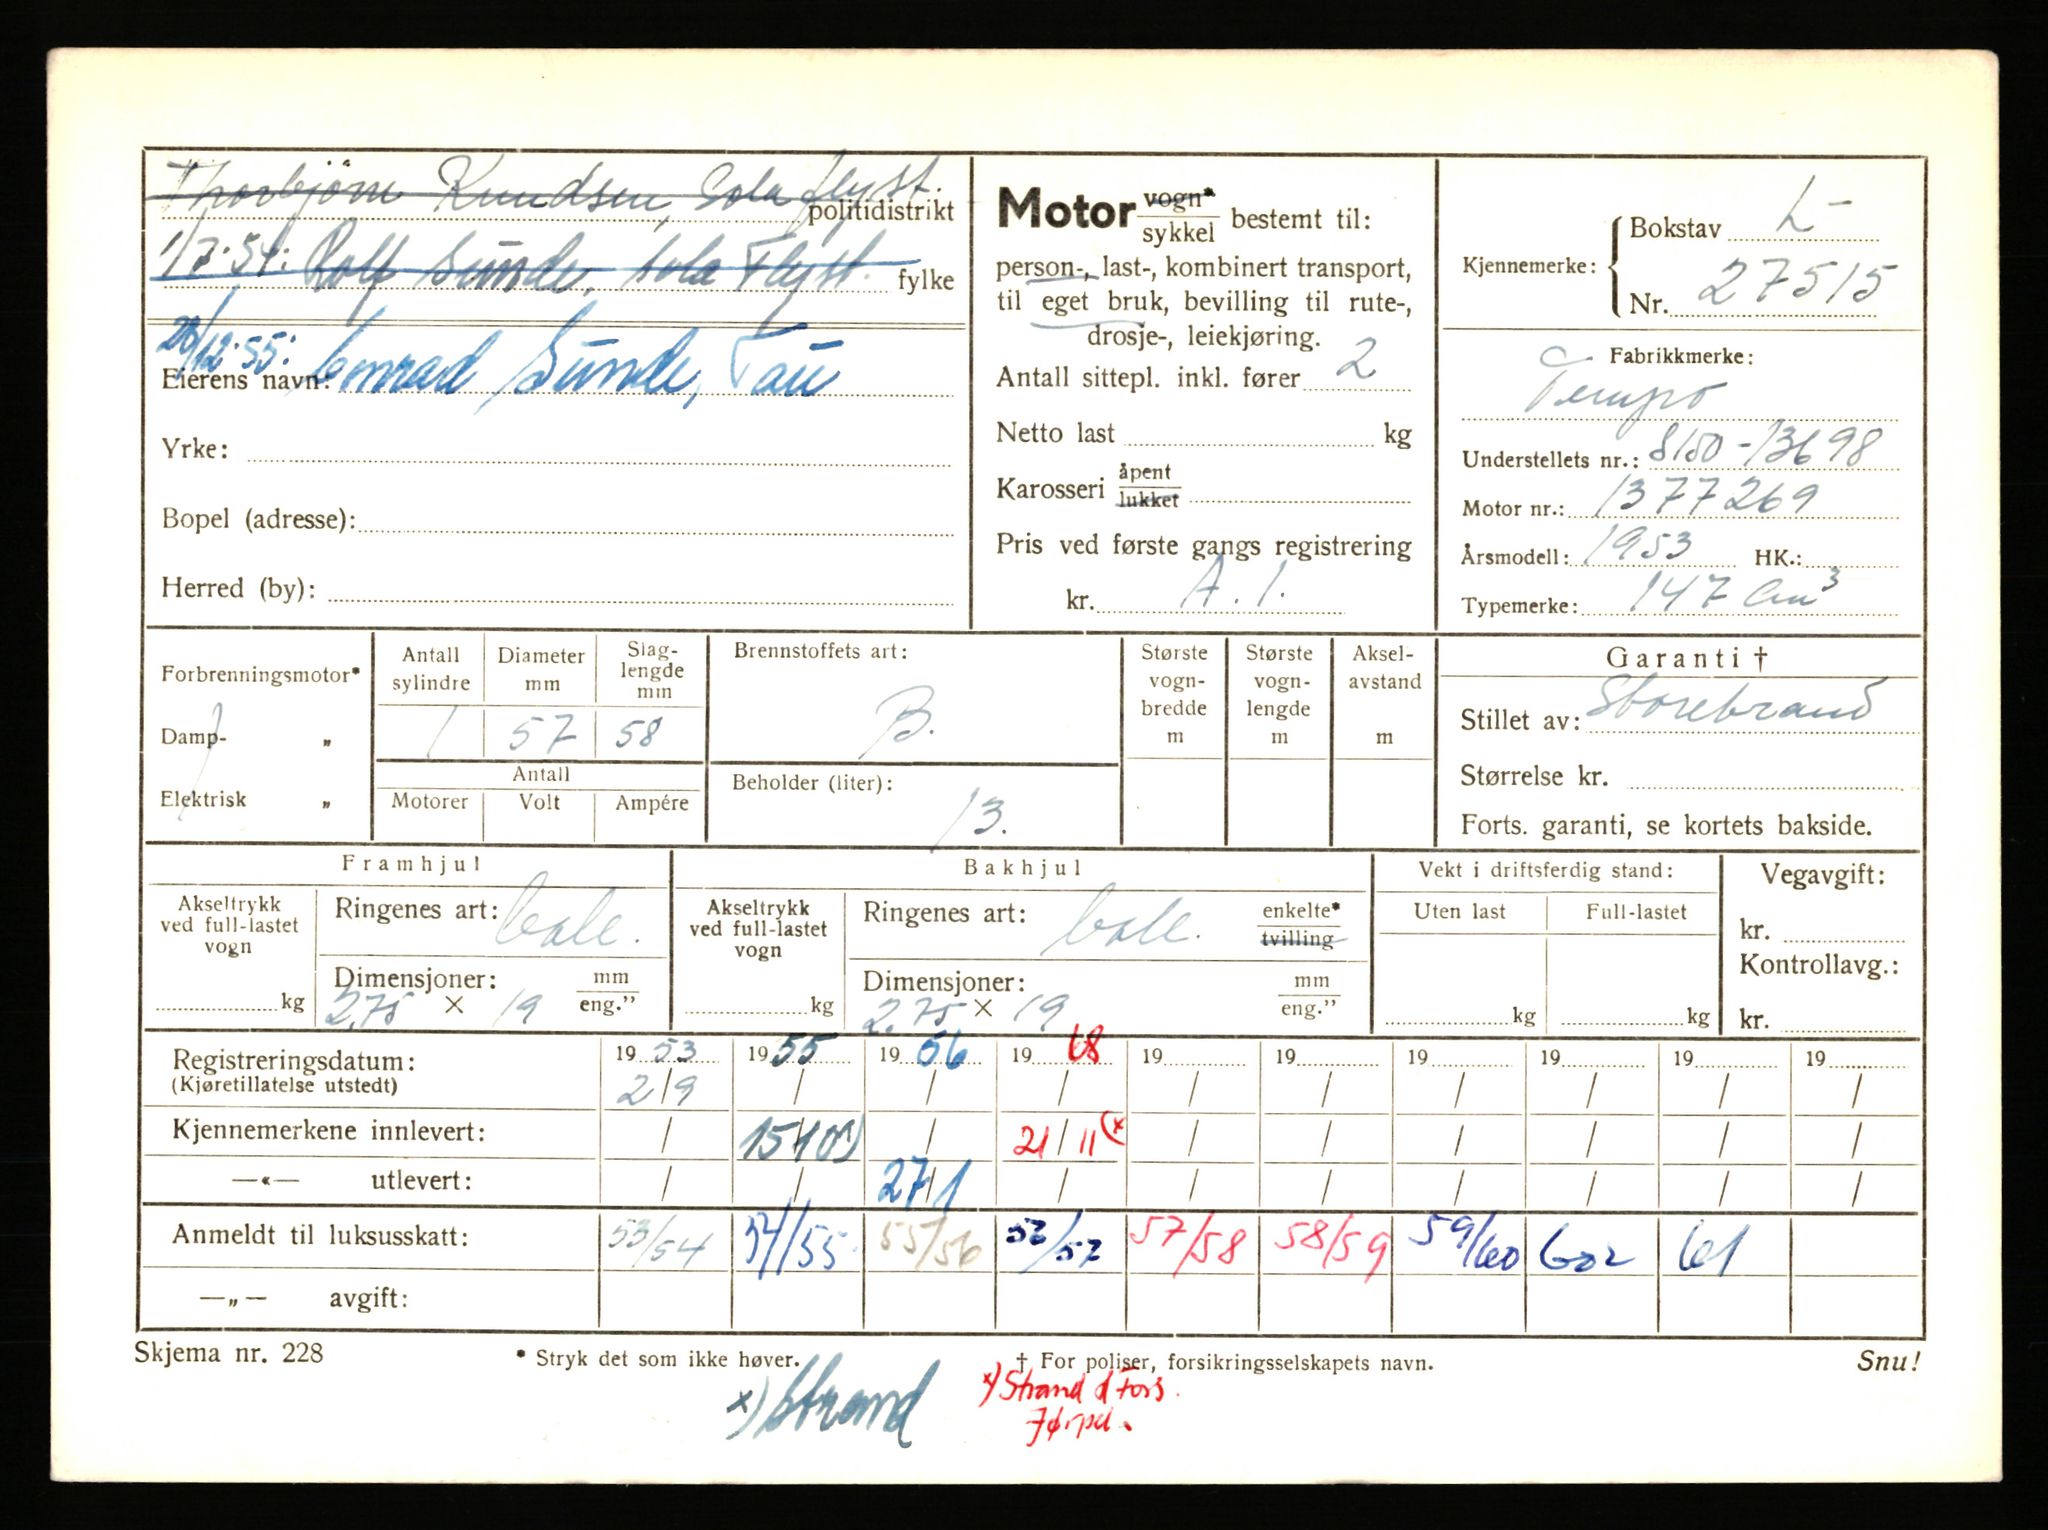 Thorbjørn Knudsen, Sola flyst.
politidistrikt
1/7-54: Rolf Sunde, Sola Flyst.
fylke
20/12-55:
Eierens navn: Conrad Sunde, Tau
Yrke:
Bopel (adresse):
Herred (by):
Motor vogn* sykkel bestemt til:
person-, last-, kombinert transport,
til eget bruk, bevilling til rute-,
drosje-, leiekjøring.
Antall sittepl. inkl. fører 2
Netto last kg
Karosseri åpent lukket
Pris ved første gangs registrering
kr. A. 1.
Kjennemerke:
Bokstav L-
Nr. 27515
Fabrikkmerke:
Tempo
Understellets nr.: 8150-13698
Motor nr.: 1377269
Årsmodell: 1953 HK.:
Typemerke: 147 cm³
Forbrenningsmotor*
Damp- „
Elektrisk „
Antall sylindre
Diameter mm
Slaglengde mm
1 57 58
Antall
Motorer Volt Ampére
Brennstoffets art:
B.
Beholder (liter):
13.
Største vognbredde m
Største vognlengde m
Akselavstand m
Garanti †
Stillet av: Storebrand
Størrelse kr.
Forts. garanti, se kortets bakside.
Framhjul
Akseltrykk ved full-lastet vogn
kg
Ringenes art:
Dimensjoner: mm
2,75 × 19 eng.”
Bakhjul
Akseltrykk ved full-lastet vogn
kg
Ringenes art: enkelte* tvilling
Dimensjoner: mm
2,75 × 19 eng.”
Vekt i driftsferdig stand:
Uten last Full-lastet
kg kg
Vegavgift:
kr.
Kontrollavg.:
kr.
Registreringsdatum: 19 53 19 55 19 56 19 68 19 19 19 19 19 19
(Kjøretillatelse utstedt) 2/9 / / / / / / / / /
Kjennemerkene innlevert: / 15/10 x) / 21/11 (x / / / / / /
—«— utlevert: / / 27/1 / / / / / / /
Anmeldt til luksusskatt: 53/54 54/55 55/56 57/58 58/59 59/60 61
—„— avgift:
Skjema nr. 228
* Stryk det som ikke høver.
† For poliser, forsikringsselskapets navn.
Snu!
x) Strand
x) Strand